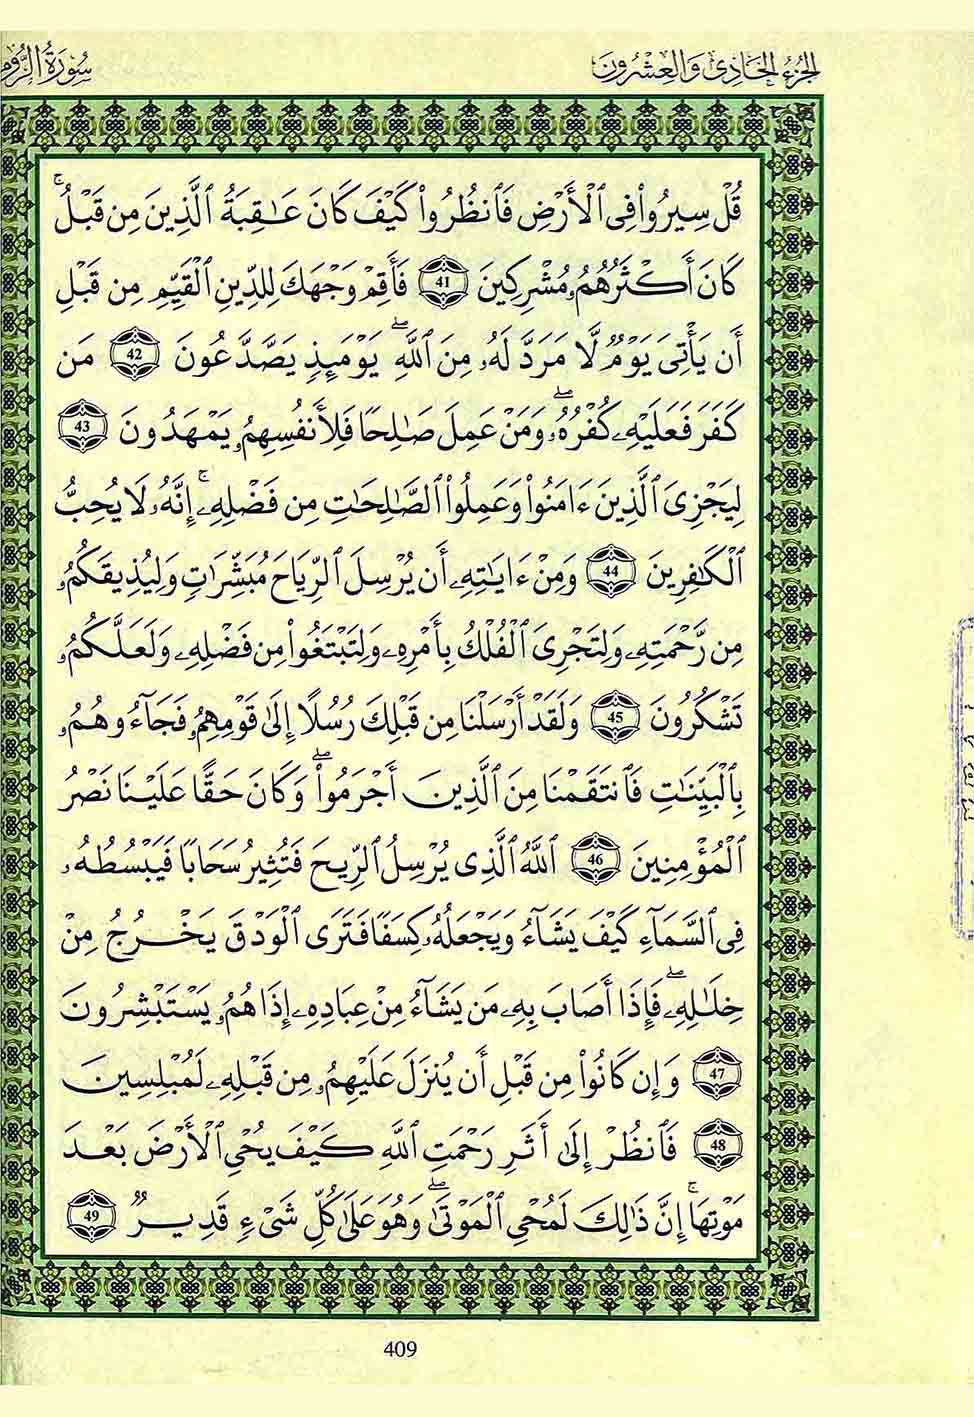 الجزء الحادي والعشرون
سورة الروم
قُلْ سِيرُواْ فِي اِ۬لْأَرْضِ فَانظُرُواْ كَيْفَ كَانَ عَٰقِبَةُ اُ۬لَّذِينَ مِن قَبْلُۚ
كَانَ أَكْثَرُهُمُۥ مُشْرِكِينَ 41 فَأَقِمْ وَجْهَكَ لِلدِّينِ اِ۬لْقَيِّمِ مِن قَبْلِ
أَن يَأْتِيَ يَوْمٌ لَّا مَرَدَّ لَهُۥ مِنَ اَ۬للَّهِۖ يَوْمَئِذٍ يَصَّدَّعُونَ 42 مَن
كَفَرَ فَعَلَيْهِۦ كُفْرُهُۥۖ وَمَنْ عَمِلَ صَٰلِحًا فَلِأَنفُسِهِمُۥ يَمْهَدُونَ 43
لِيَجْزِيَ اَ۬لَّذِينَ ءَامَنُواْ وَعَمِلُواْ اُ۬لصَّٰلِحَٰتِ مِن فَضْلِهِۦۚ إِنَّهُۥ لَا يُحِبُّ
اُ۬لْكَٰفِرِينَ 44 وَمِنْ ءَايَٰتِهِۦ أَن يُرْسِلَ اَ۬لرِّيَاحَ مُبَشِّرَٰتٍ وَلِيُذِيقَكُمُۥ
مِن رَّحْمَتِهِۦ وَلِتَجْرِيَ اَ۬لْفُلْكُ بِأَمْرِهِۦ وَلِتَبْتَغُواْ مِن فَضْلِهِۦ وَلَعَلَّكُمُۥ
تَشْكُرُونَ 45 وَلَقَدْ أَرْسَلْنَا مِن قَبْلِكَ رُسُلًا إِلَىٰ قَوْمِهِمُۥ فَجَآءُوهُمُۥ
بِالْبَيِّنَٰتِ فَانتَقَمْنَا مِنَ اَ۬لَّذِينَ أَجْرَمُواْۖ وَكَانَ حَقًّا عَلَيْنَا نَصْرُ
اُ۬لْمُؤْمِنِينَ 46 اَ۬للَّهُ اُ۬لَّذِي يُرْسِلُ اُ۬لرِّيحَ فَتُثِيرُ سَحَابًا فَيَبْسُطُهُۥ
فِي اِ۬لسَّمَآءِ كَيْفَ يَشَآءُ وَيَجْعَلُهُۥ كِسَفًا فَتَرَى اَ۬لْوَدْقَ يَخْرُجُ مِنْ
خِلَٰلِهِۦۖ فَإِذَا أَصَابَ بِهِۦ مَن يَشَآءُ مِنْ عِبَادِهِۦ إِذَا هُمُۥ يَسْتَبْشِرُونَ
47 وَإِن كَانُواْ مِن قَبْلِ أَن يُنزَلَ عَلَيْهِمُۥ مِن قَبْلِهِۦ لَمُبْلِسِينَ
48 فَانظُرْ إِلَىٰ أَثَرِ رَحْمَتِ اِ۬للَّهِ كَيْفَ يُحْيِ اِ۬لْأَرْضَ بَعْدَ
مَوْتِهَاۚ إِنَّ ذَٰلِكَ لَمُحْيِ اِ۬لْمَوْتَىٰۖ وَهُوَ عَلَىٰ كُلِّ شَيْءٍ قَدِيرٌ 49
409